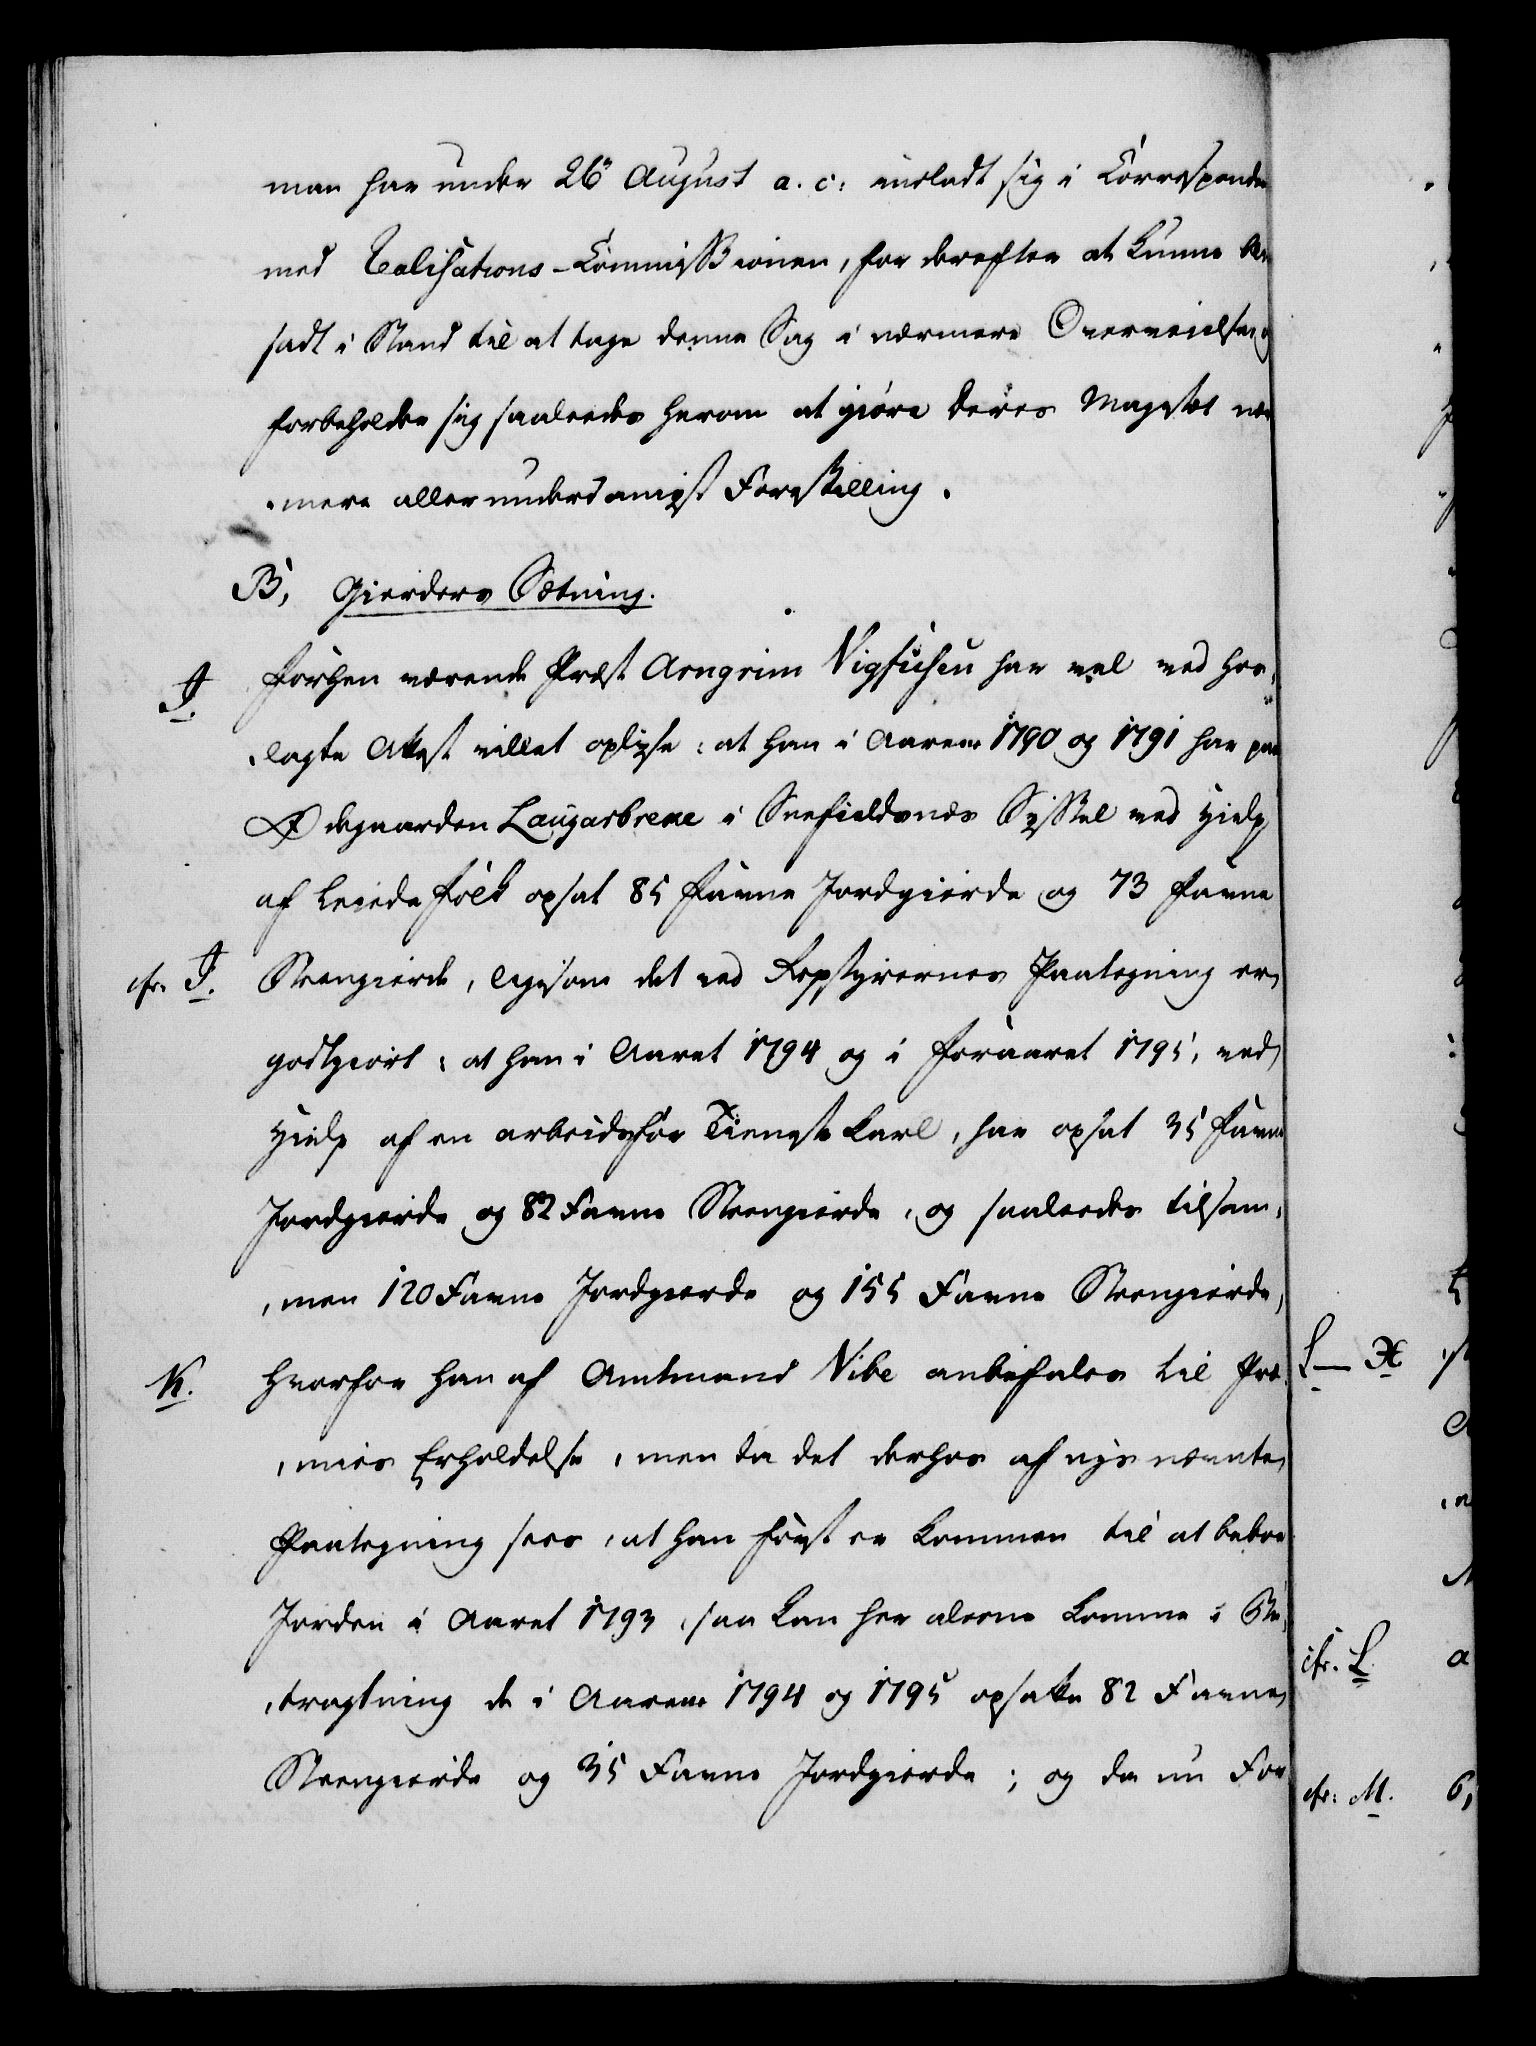 man har under 26de August a. c. indladt sig i Corresponden
med Realisations-Commissionen, for derefter at kunne ver
sadt i Stand til at tage denne Sag i nærmere Overveielse, og
forbeholder sig saaledes herom at giöre Deres Majestet nær
,mere allerunderdanigst Forestilling.
B, Gierders Sætning.
J. Forhen værende Præst Arngrim Vigfusen har vel ved hos,
,lagte Attest villet oplyse: at han i Aarene 1790 og 1791 har paa
Ödegaarden Laugarbrekke i Snefieldsnæs Syssel ved Hielp
af leiede Folk opsat 85 Favne Jordgierde og 73 Favne
cfr. J. Steengierde, ligesom det ved Repstyrernes Paategning er
godtgiort: at han i Aaret 1794 og i Foraaret 1795, ved
Hielp af en arbeidsför Tieneste Karl, har opsat 35 Favne
Jordgierde og 82 Favne Steengierde, og saaledes tilsam,
,men 120 Favne Jordgierde og 155 Favne Steengierde,
K. hvorfor han af Amtmand Vibe anbefales til Præ,
,mies Erholdelse, men da det derhos af nys nævnte
Paategning sees, at han först er kommen til at beboe
Jorden i Aaret 1793, saa kan her aleene komme i Be,
,tragtning de i Aarene 1794 og 1795 opsatte 82 Favne
Steengierde og 35 Favne Jordgierde; og da nu For
L — X
cfr. L.
cfr. M.